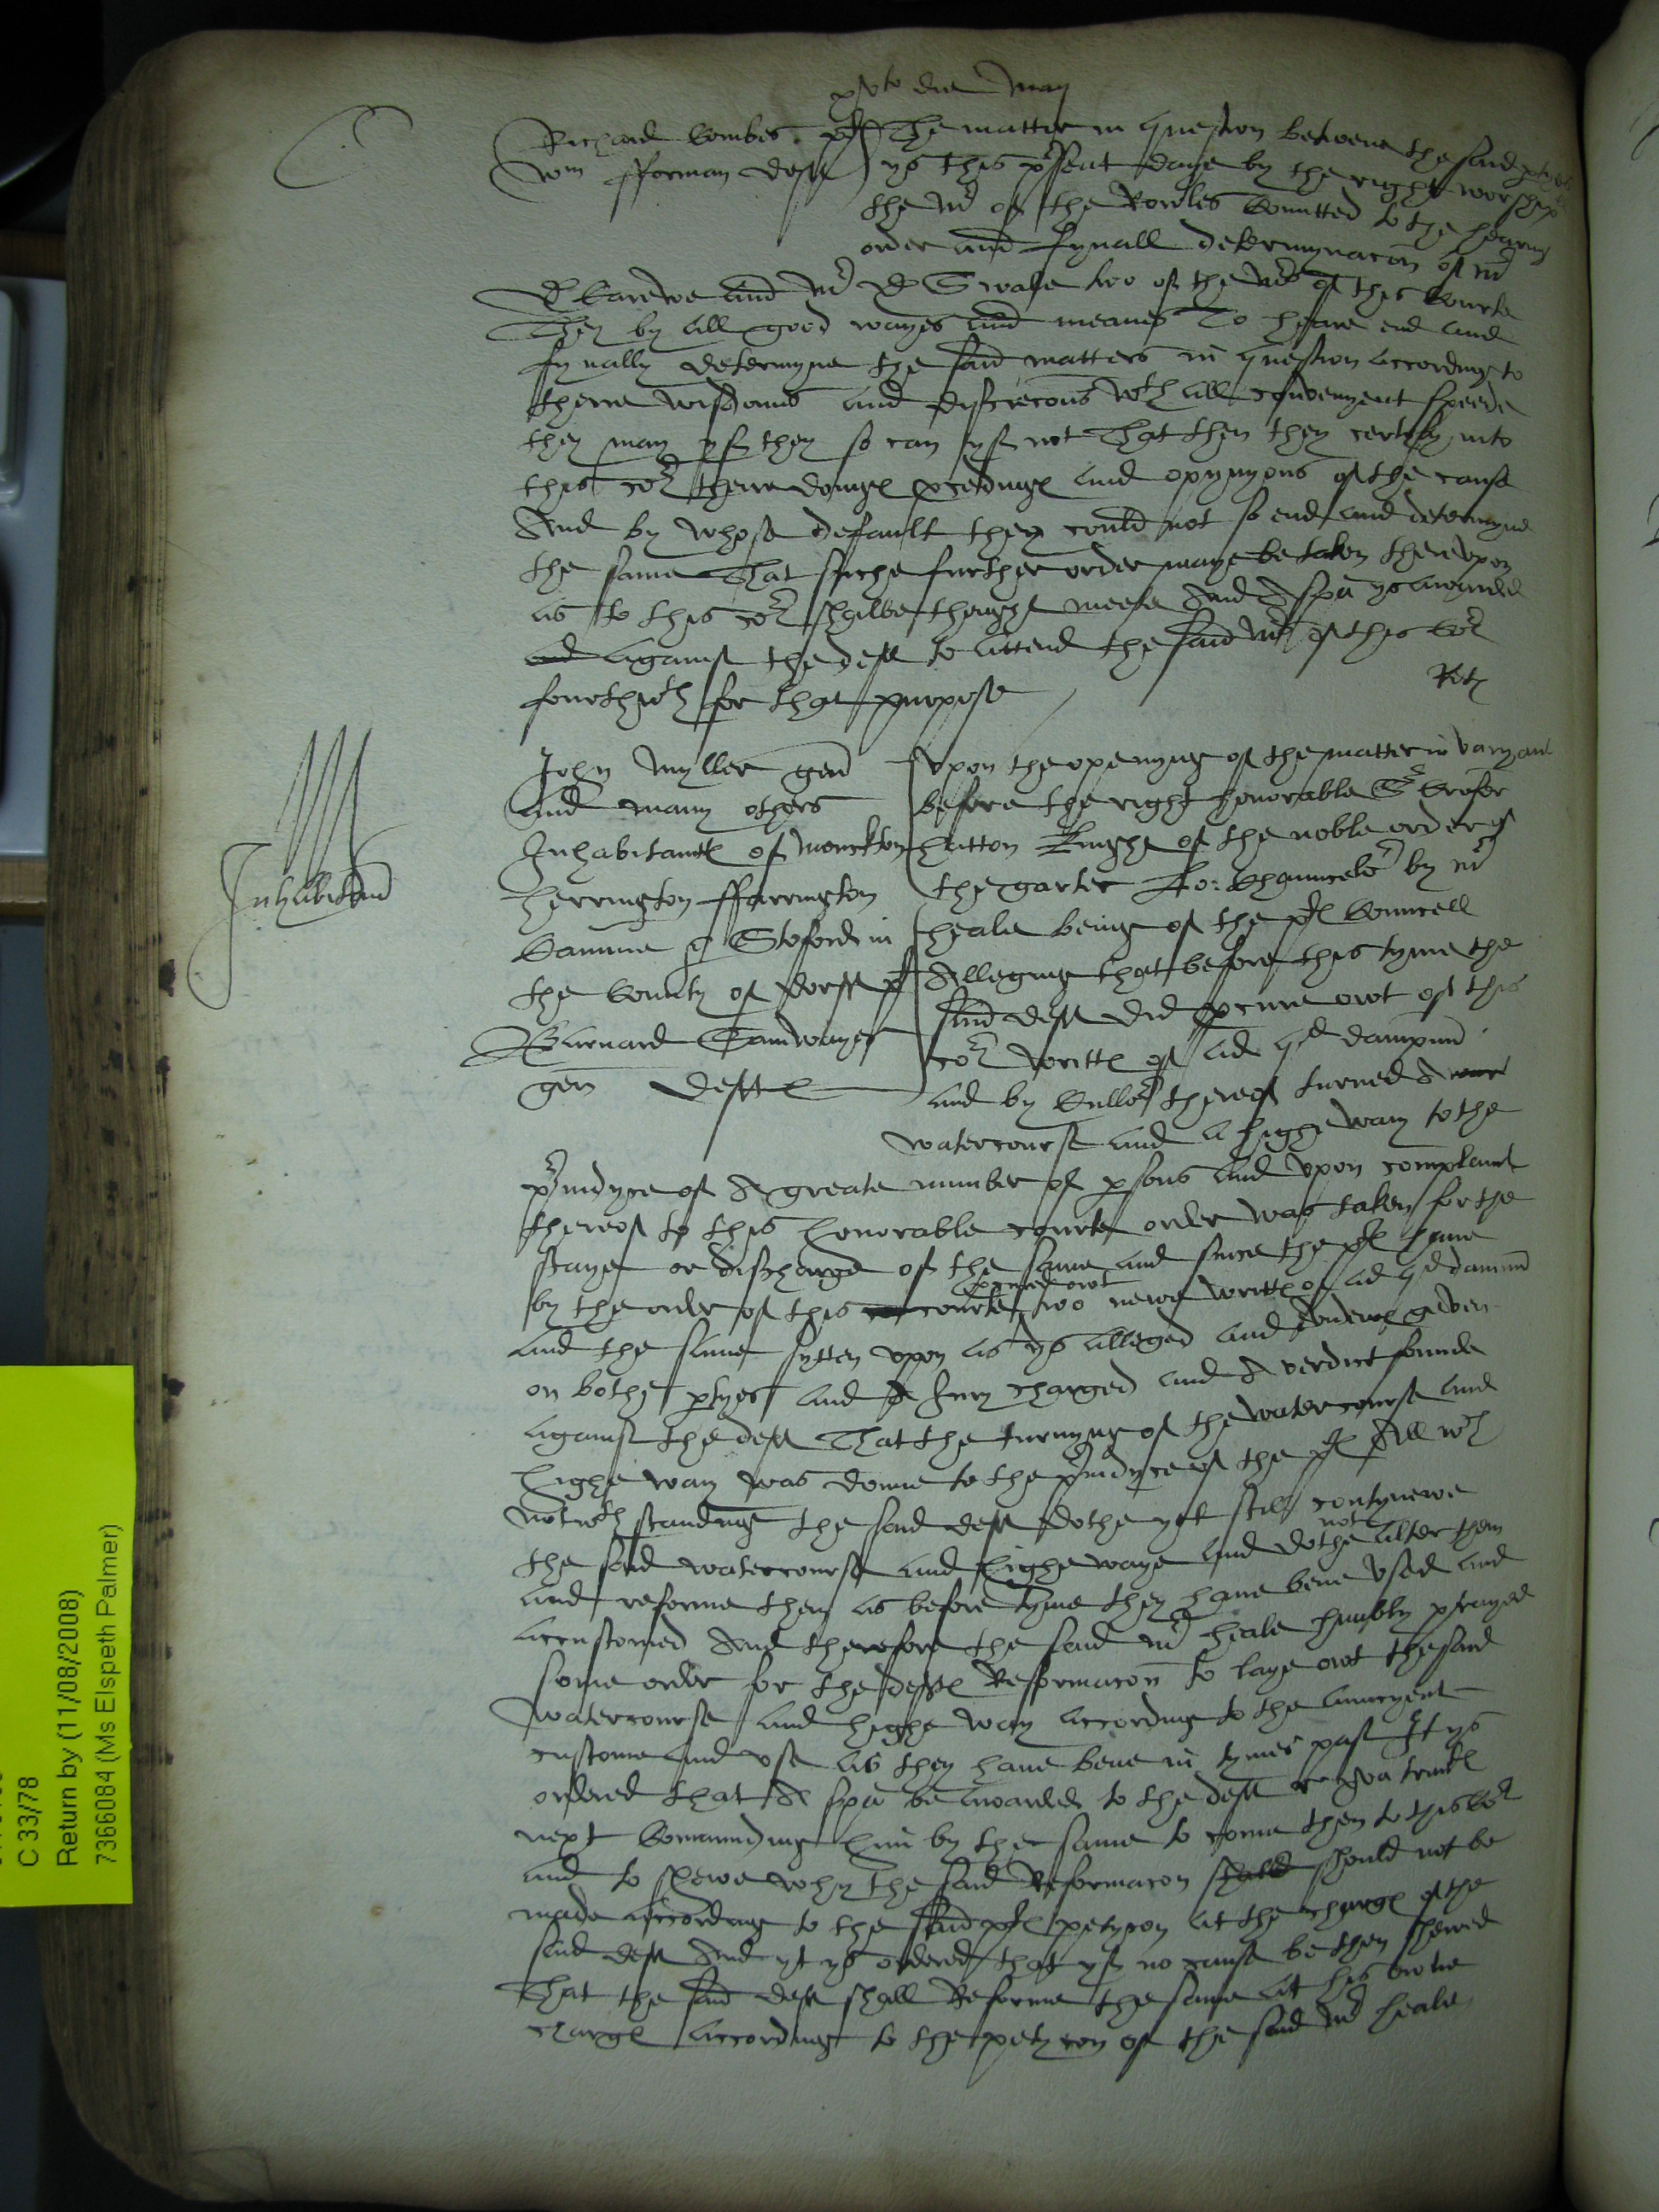 xvto die May
Richard Combes pl The matter in question betwene the said ptyes
Wm fforman deft ys this present daye by the right worship
the Mr of the Rowles Comitted to the hearing
order and fynall determynacon of Mr
D Carewe and Mr D Swale two of the Mrs of this Courte
They by all good wayes and meanes To heare end and
fynally determyne the said matters in question according to
theire wisdoms and discrecons wth all convenyent speede
they may yf they so can yf not That then they certyfy into
this cor theire doinges pcedinges and opynyons of the cause
And by whose default they could not so end and determyne
the same That suche further order maye be taken therevpon
as to this cor shalbe thought meete And A spa ys awarded
against the deft to attend the said Mrs of this Cor
fourthwth for that purpose
John Myller gen
and many others
Inhabitantes of Monckton
Herrington ffarrington
Camme & Stoford in
the County of Dorst pl
Barnard Samwayes
gen deft
Inhabitand
Vpon the openyng of the matter in varyan
before the right honorable Sr Cristofer
Hatton Knight of the noble order of
the garter Lo: Chauncelor by Mr
Heale being of the ples Councell
Alleging that before this tyme the
said deft did pcure owt of this
cor writtes of ad qd dampnu
and by Cullor thereof turned A
watercourse and a highe way to the
preiudyce of A greate number of psons and vpon complaint
thereof to this honorable courte order was taken for the
staye or discharge of the same and since the ples have
by the order of this courte pcured owt two newe writtes of ad qd damnu
and the same sytten vpon as ys alleged and evidence geven
on bothe ptyes and A Iury charged and A verdict founde
against the deft That the turnyng of the watercourse and
highe way was donne to the preiudyce of the ples All wch
notwthstanding the said deft dothe yet still contynewe
the said watercourse and highe waye and dothe not alter them
and reforme them as before tyme they have bene vsed and
accustomed And therefore the said Mr Heale humbly prayed
some order for the deftes Reformacon to laye owt the said
watercourse and highe way according to the auncyent
custome and vse as they have bene in tymes past It ys
ordered that A spa be awarded to the deft
next Comaunding him by the same to come then to this Cor
and to shewe why the said Reformacon should not be
made according to the said ples petycon at the charges of the
said deft And yt ys ordered that yf no cause be then shewed
That the said deft shall Reforme the same at his owne
charges according to the petycon of the said Mr Heale
C 33/78
Return by (11/08/2008)
7366084 (Ms Elspeth Palmer)